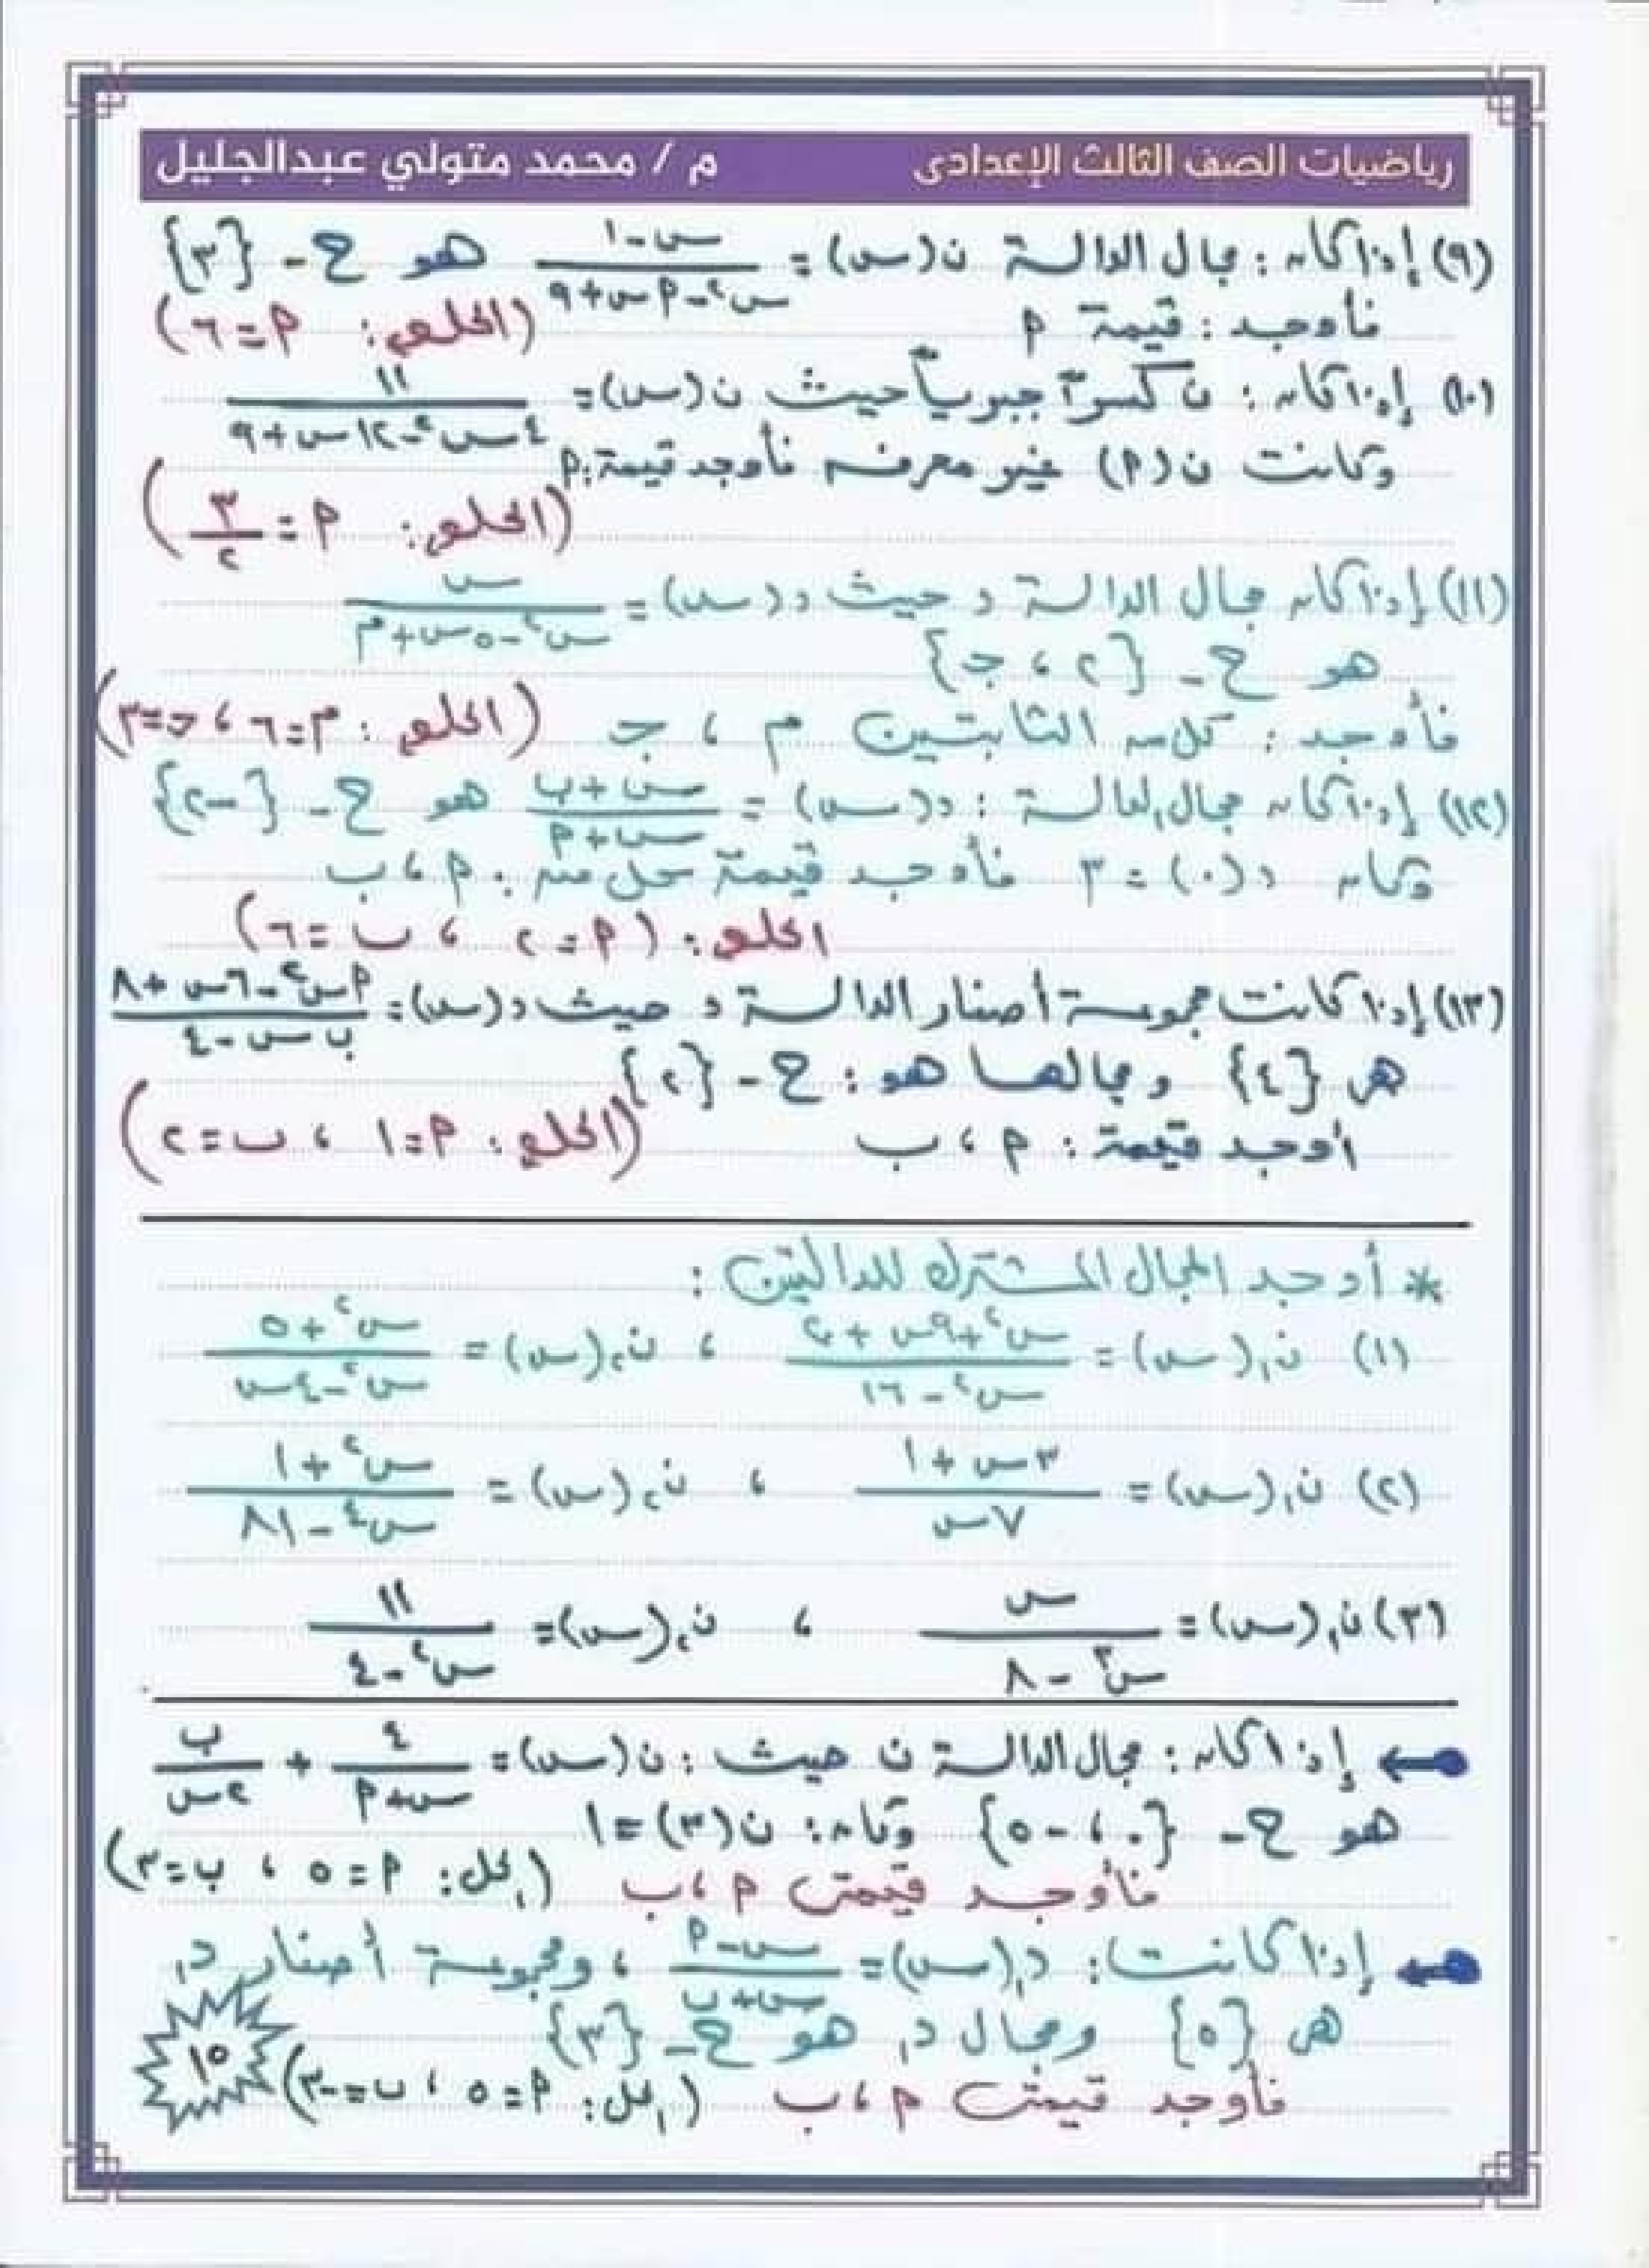 رياضيات الصف الثالث الإعدادى م / محمد متولي عبدالجليل
(٩) إذا كان : مجال الدالة ن(س) = (س - ١) / (س² - أس + ٩) هو ح - {٣}
فأوجد : قيمة أ (الحلو : أ = ٦)
(١٠) إذا كان : ن كسرًا جبرياً حيث ن(س) = ١١ / (٤س² - ١٢س + ٩)
وكانت ن(أ) غير معرفه فأوجد قيمة : أ
(الحلو : أ = ٣/٢)
(١١) إذا كان مجال الدالة د حيث د(س) = س / (س² - ٥س + م)
هو ح - {٢ ، جـ}
فأوجد : كل من الثابتين م ، جـ (الحلو : م = ٦ ، جـ = ٣)
(١٢) إذا كان مجال الدالة : د(س) = (س + ب) / (س + أ) هو ح - {-٢}
وكان د(٠) = ٣ فأوجد قيمة كل من : أ ، ب
الحلو : (أ = ٢ ، ب = ٦)
(١٣) إذا كانت مجموعة أصفار الدالة د حيث د(س) = (أس² - ٦س + ٨) / (ب س - ٤)
هى {٤} ومجالها هو : ح - {٢}
أوجد قيمة : أ ، ب (الحلو : أ = ١ ، ب = ٢)
* أوجد المجال المشترك للدالتين :
(١) ن₁(س) = (س² + ٩س + ٢٠) / (س² - ١٦) ، ن₂(س) = (س² + ٥) / (س² - ٤س)
(٢) ن₁(س) = (٣س + ١) / ٧س ، ن₂(س) = (س² + ١) / (س⁴ - ٨١)
(٣) ن₁(س) = س / (س³ - ٨) ، ن₂(س) = ١١ / (س² - ٤)
إذا كان : مجال الدالة ن حيث : ن(س) = ٤ / (س + أ) + ب / ٢س
هو ح - {٠ ، -٥} وكان : ن(٣) = ١
فأوجد قيمتى أ ، ب (الحل : أ = ٥ ، ب = ٣)
إذا كانت : د₁(س) = (س - أ) / (س + ب) ، ومجموعة أصفار د₁
هى {٥} ومجال د₁ هو ح - {٣}
فأوجد قيمتى أ ، ب (الحل : أ = ٥ ، ب = -٣)
١٥